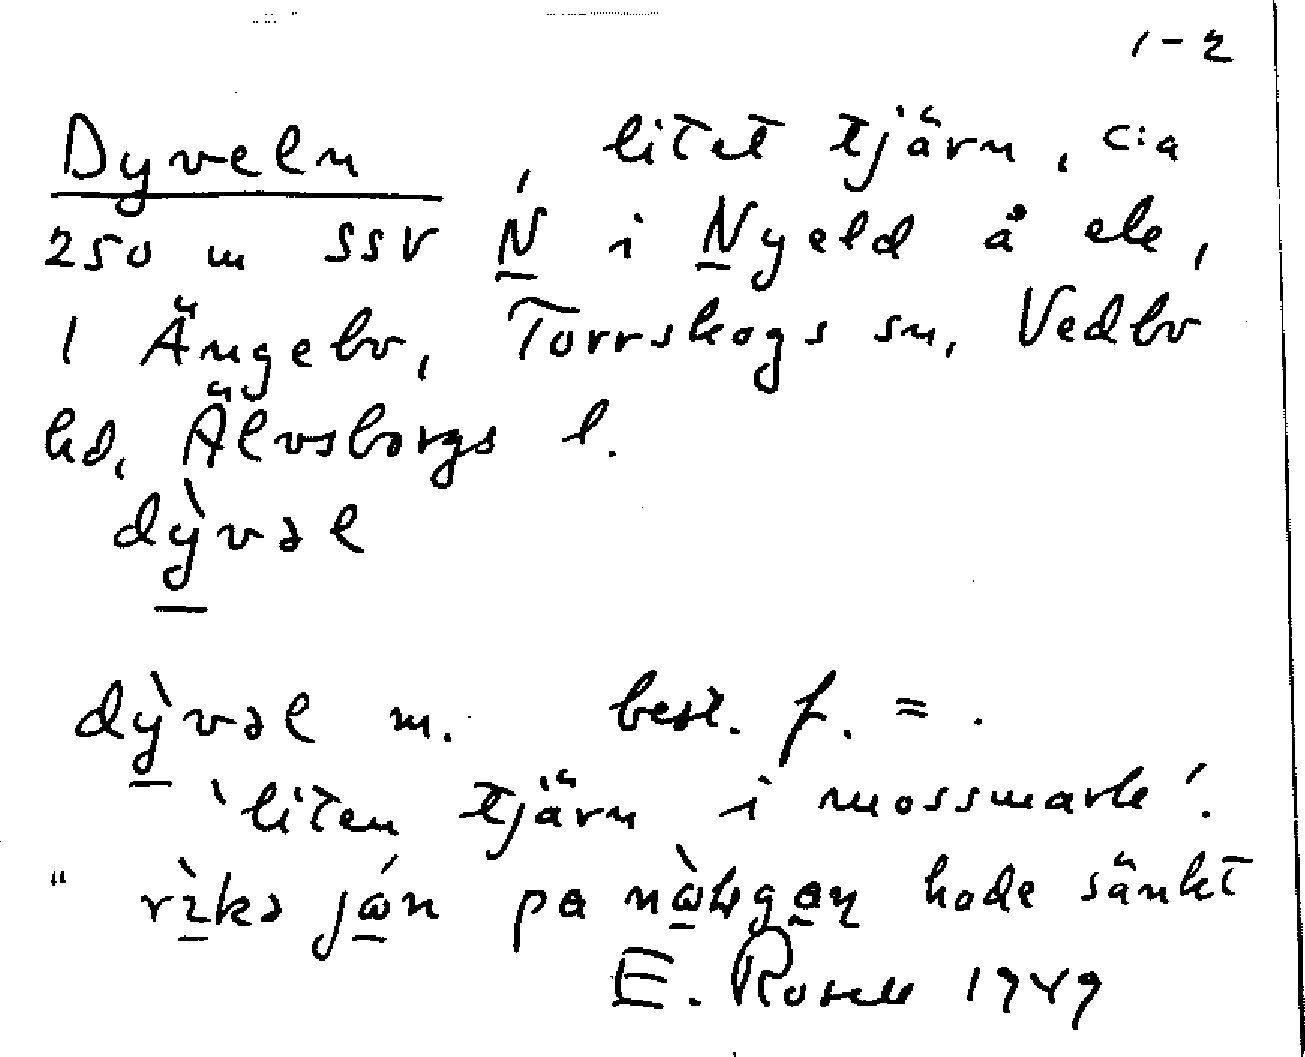 1-2
Dyveln, litet tjärn, c:a
250 m SSV N i Nyeld å ek,
1 Ängebo, Torrskogs sn, Vedbo
hd, Älvsborgs l.
dỳvəl
dỳvəl m. best. f. = .
'liten tjärn i mossmark'.
" pa hade sänkt
E. Rosell 1949